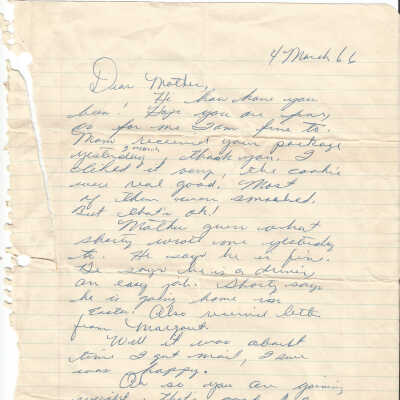 4 March 66
Dear Mother,
Hi how have you
been! Hope you are fine,
as for me I am fine to.
Mom received your package
yesterday 3 march thank you. I
liked it very, the cookie
were real good. Most
of them were smashed.
But that's ok!
Mother guess what
shorty wrote me yesterday
to. He says he is fine.
He says he is a driver
an easy job. Shorty says
he is going home in
Easter. Also received lett
from Margaret.
Well it was about
time I got mail, I sure
was happy.
Oh so you are gaining
weight. That's good